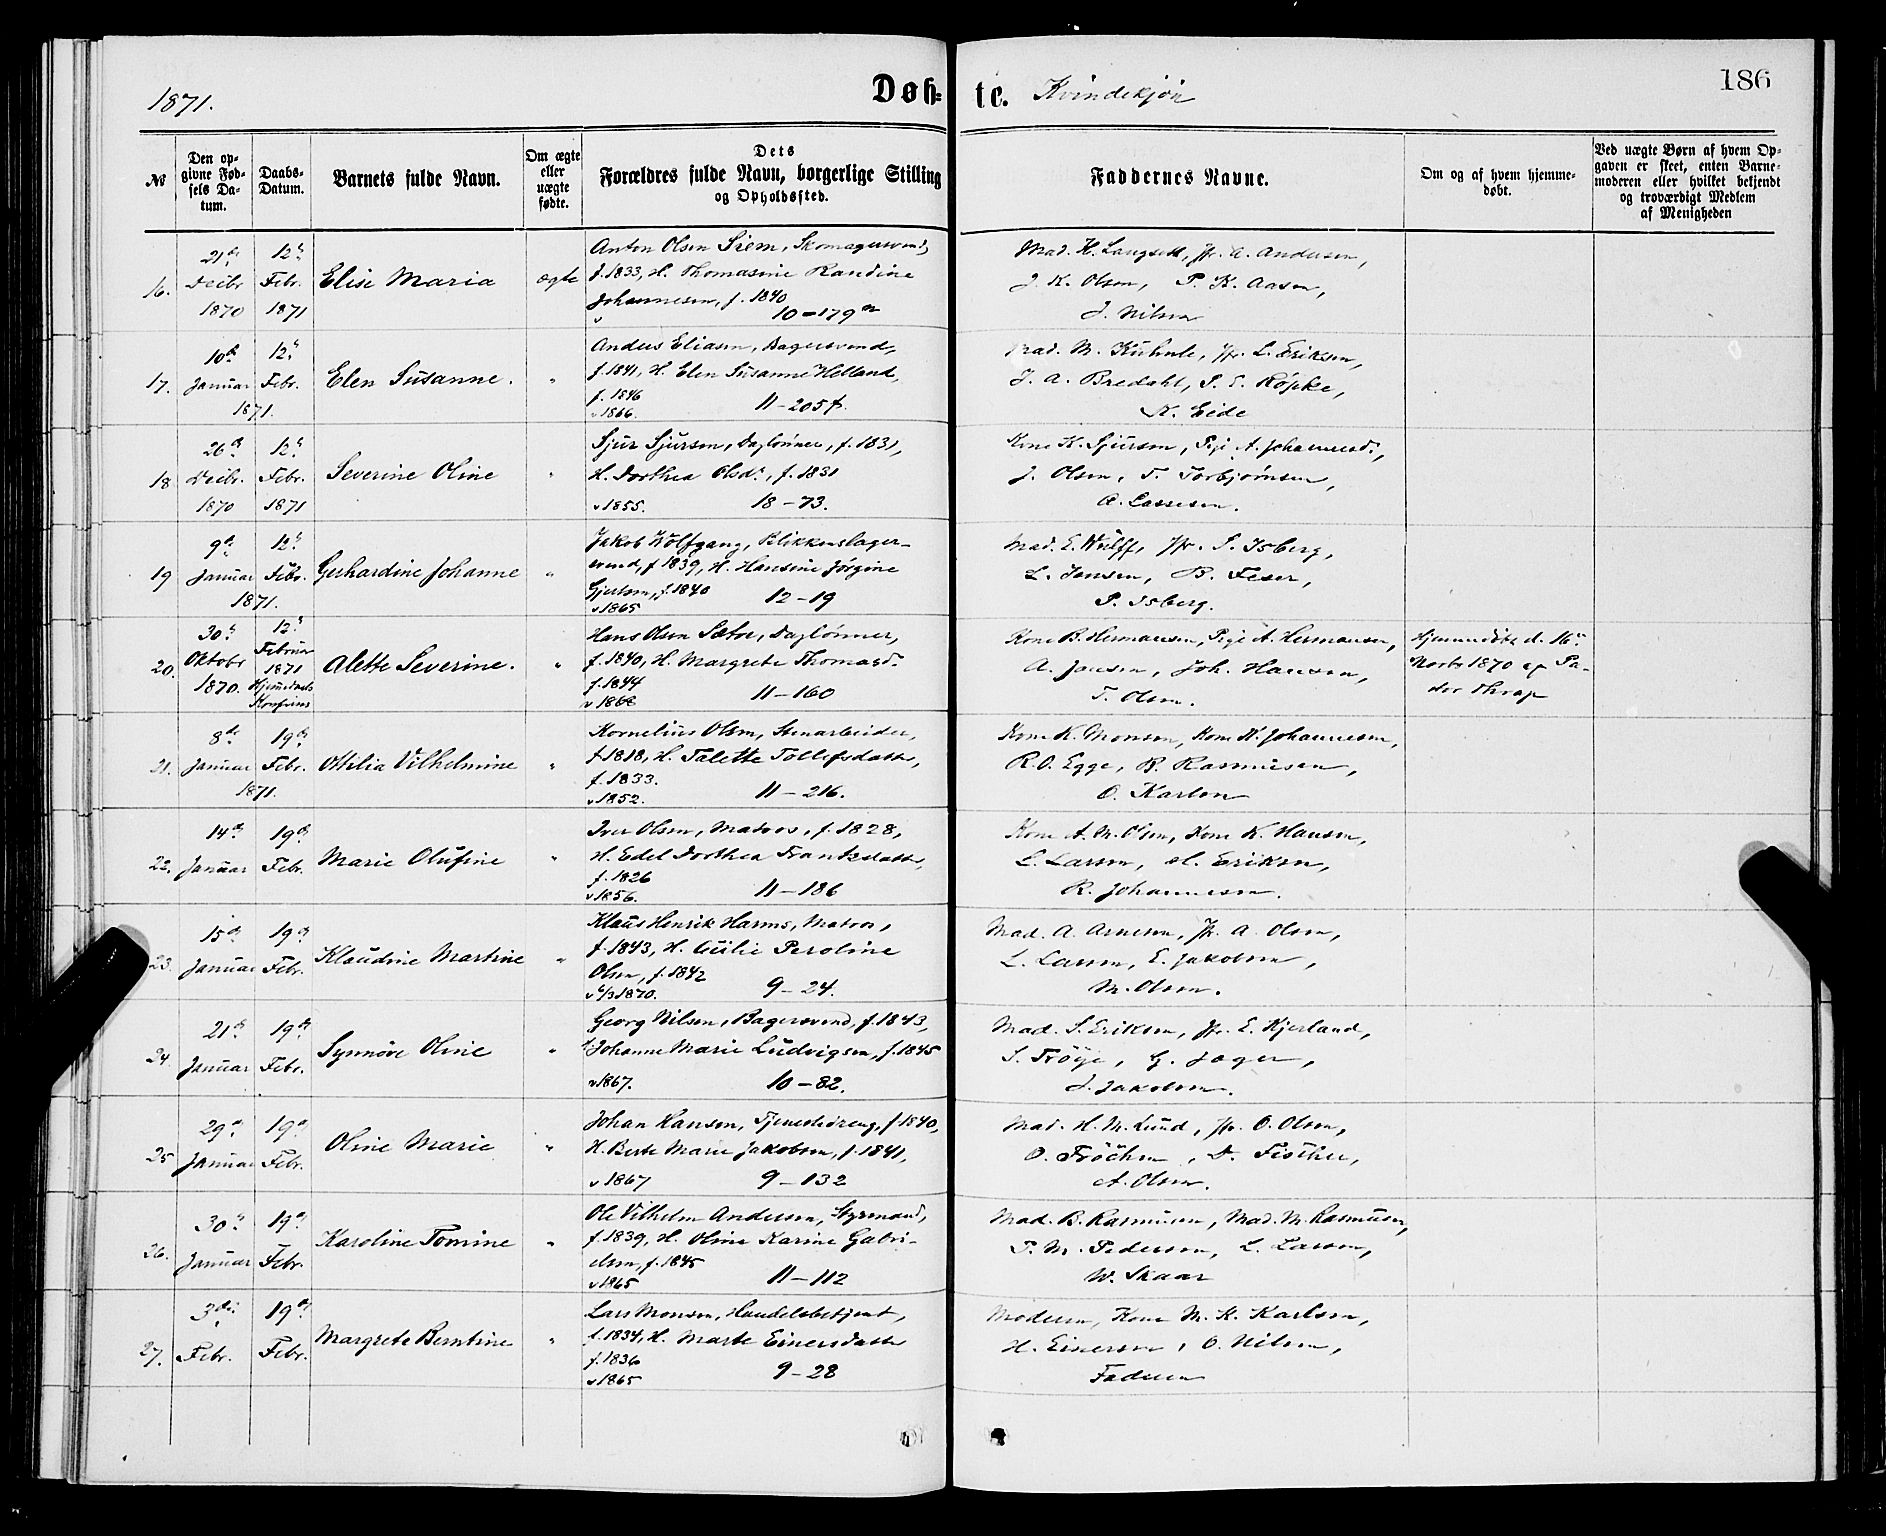 1871.
Døb-
te.
Kvindekjøn
186
№
Den op-
givne Fød-
sels Da-
tum.
Daabs-
Datum.
Barnets fulde Navn.
Om ægte
eller
uægte
fødte.
Dets
Forældres fulde Navn, borgerlige Stilling
og Opholdssted.
Faddernes Navne.
Om og af hvem hjemme-
døbt.
Ved uægte Børn af hvem Op-
gaven er skeet, enten Barne-
moderen eller hvilket bekjendt
og troværdigt Medlem
af Menigheden
16.
21de
Decbr
1870
12te
Febr.
1871
Elise Maria
ægte
Anton Olsen Siem, Skomagersvend,
f. 1833, H. Thomasine Randine
Johannesen, f. 1840
10-179
Mad. H. Langseth, Jfr. A. Andersen,
J. K. Olsen, P. K. Aasen,
J. Nilsen
17.
10de
Januar
1871.
12te
Febr.
Elen Susanne.
"
Anders Eliasen, Bagersvend,
f. 1841, H. Elen Susanne Helland,
f. 1846
v 1866.
11-205
Mad. M. Kuhnle, Jfr. L. Eriksen,
J. A. Bredahl, S. E. Röpke,
N. Eide
18
26de
Decbr.
1870
12te
Febr.
1871
Severine Oline
"
Sjur Sjursen, Daglønner, f. 1831,
H. Dorthea Olsdr, f. 1831
v 1855.
18-73.
Kone K. Sjursen, Pige A. Johannesdr,
J. Olsen, T. Torbjørnsen,
A. Lassesen.
19
9de
Januar
1871.
12te
Febr.
Gerhardine Johanne
"
Jakob Wolfgang, Blikkenslager-
svend, f 1839, H. Hansine Jørgine
Gjertsen, f. 1840
v 1865
12-19
Mad. E. Wulff, Jfr. S. Isberg,
L. Jansen, B. Feser,
P. Isberg.
20.
30te
Oktobr
1870.
12te
Februar
1871
Hjemdaab
Alette Severine.
"
Hans Olsen Sætre, Daglønner,
f. 1840, H. Margrete Thomasd.
f. 1844
v 1868
11-160
Kone B. Hermansen, Pige A. Hermansen,
A. Jansen, Joh. Hansen,
T. Olsen.
Hjemmedøbt d. 16de
Novbr 1870 af Pa-
stor Thrap
21.
8de
Januar
1871.
19de
Febr.
Ottilia Vilhelmine
"
Kornelius Olsen, Stenarbeider,
f 1818, H. Talette Tollefsdatter,
f. 1833.
v 1852.
11-216.
Kone K. Monsen, Kone N. Johannesen,
R. O. Egge, R. Rasmusen,
O. Karlsen
22.
14de
Januar
19de
Febr.
Marie Olufine
"
Iver Olsen, Matros, f. 1828,
H. Edel Dorthea Frantzdatter,
f. 1826
v 1856.
11-186
Kone A. M. Olsen, Kone K. Hansen,
L. Larsen, M. Eriksen,
R. Johannesen.
23.
15de
Januar
19de
Febr.
Klaudine Martine
"
Klaus Henrik Harms, Matros,
f. 1843, H. Cecilie Peroline
Olsen, f. 1842
v 6/3 1870.
9-24.
Mad. A. Arnesen, Jfr. A. Olsen,
L. Larsen, E. Jakobsen,
M. Olsen.
24.
21de
Januar
19de
Febr.
Synnöve Oline
"
Georg Nilsen, Bagersvend, f. 1843,
H. Johanne Marie Ludvigsen, f. 1845
v 1867.
10-82.
Mad. S. Eriksen, Jfr. E. Kjerland,
S. Tröije, G. Jager,
J. Jakobsen.
25
29de
Januar
19de
Febr.
Oline Marie
"
Johan Hansen, Tjenestedreng, f 1840,
H. Berte Marie Jakobsen, f. 1841,
v 1867
9-132
Mad. H. M. Lund, Jfr. O. Olsen,
O. Tröchen, D. Fischer,
A. Olsen.
26.
30te
Januar
19de
Febr.
Karoline Tomine
"
Ole Vilhelm Andersen, Styrmand,
f. 1839, H. Oline Karine Gabri-
elsen, f. 1845
v 1865
11-112
Mad. B. Rasmusen, Mad. M. Rasmusen,
P. M. Pedersen, L. Larsen,
W. Skaar
27.
3die
Febr.
19de
Febr.
Margrete Berntine
"
Lars Monsen, Handelsbetjent,
f. 1834, H. Marte Einersdatter
f. 1836
v 1865
9-28
Moderen, Kone M. K. Karlsen,
H. Einersen, O. Nilsen,
Faderen